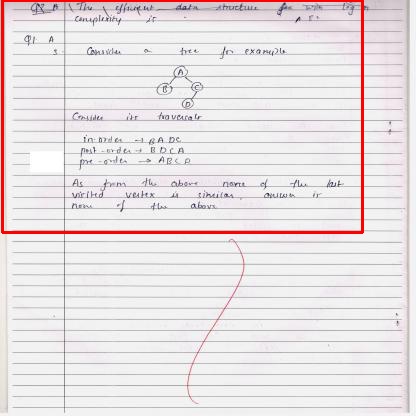 Q2. A The efficient data structure for
complexity is
Q1. A
3. Consider a tree for example
A
B C
D
Consider its traversals
in-order → BADC
post-order → BDCA
pre-order → ABCD
As from the above none of the last
visited vertex is similar, answer is
none of the above